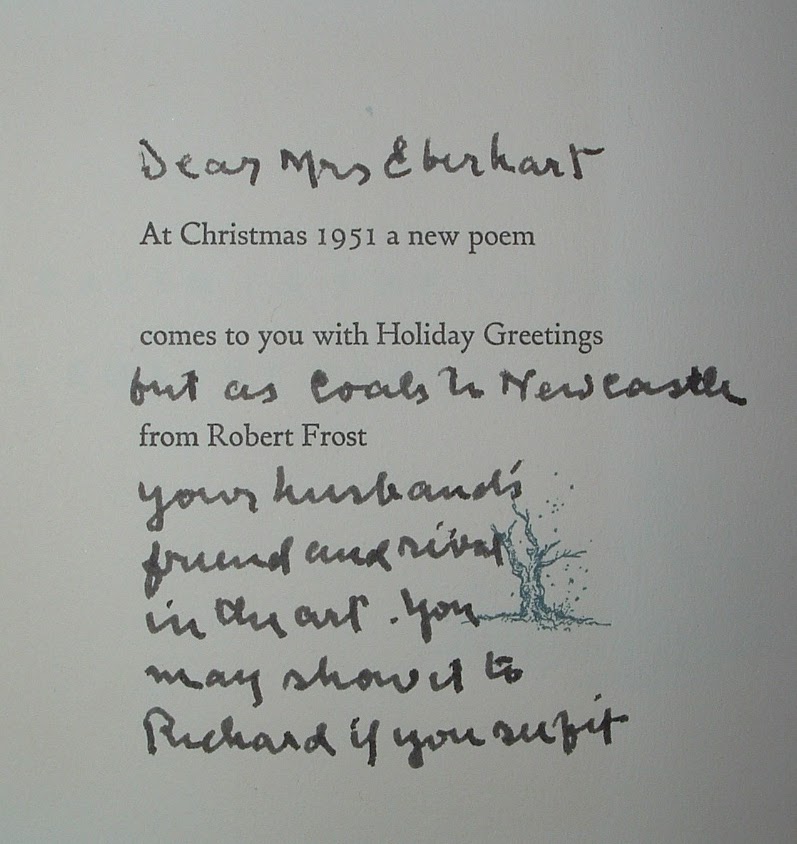 Dear Mrs Eberhart
At Christmas 1951 a new poem
comes to you with Holiday Greetings
but as coals to Newcastle
from Robert Frost
your husband's
friend and rival
in the art. You
may show it to
Richard if you see fit